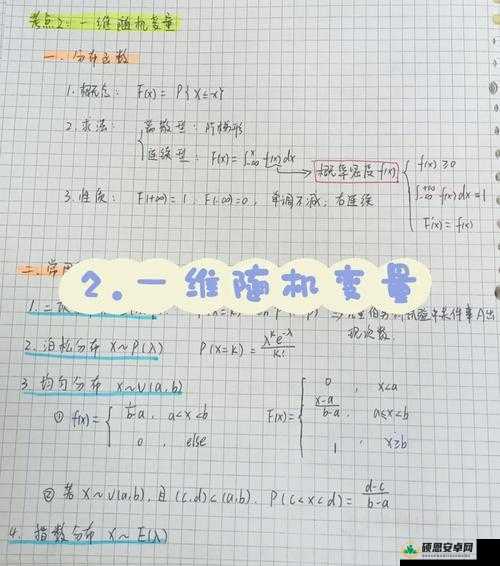 考点2:一维随机变量
一.分布函数
1.概念: F(x) = P{X≤x}
2.求法: { 离散型:阶梯形
连续型: F(x)=∫_{-∞}^{x} f(x)dx → 概率密度 f(x) { f(x)≥0
∫_{-∞}^{+∞} f(x)dx=1
F'(x)=f(x)
3.性质: F(+∞)=1, F(-∞)=0, 单调不减,右连续
二.常用
2.一维随机变量
1.二项
试验中某件事A出
现次数.
2.泊松分布 X~P(λ) P(X=k)=λ^k e^{-λ}/k!
3.均匀分布 X~U(a,b)
① f(x)= { 1/b-a, a<x<b
0, else
F(x)= { 0, x<a
x-a/b-a, a≤x<b
1, x≥b
② 若X~U(a,b),且(c,d)⊂(a,b), P(c<x<d)= d-c/b-a
4.指数分布 X~E(λ)
硕思安卓网